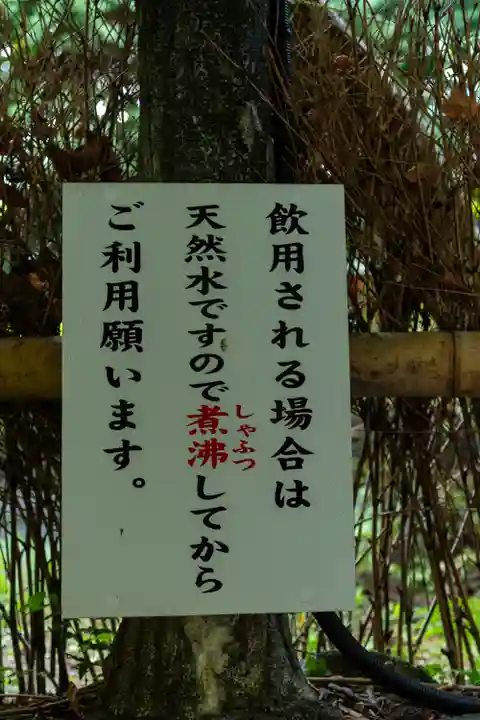 飲用される場合は
天然水ですので煮沸してから
しゃふつ
ご利用願います。